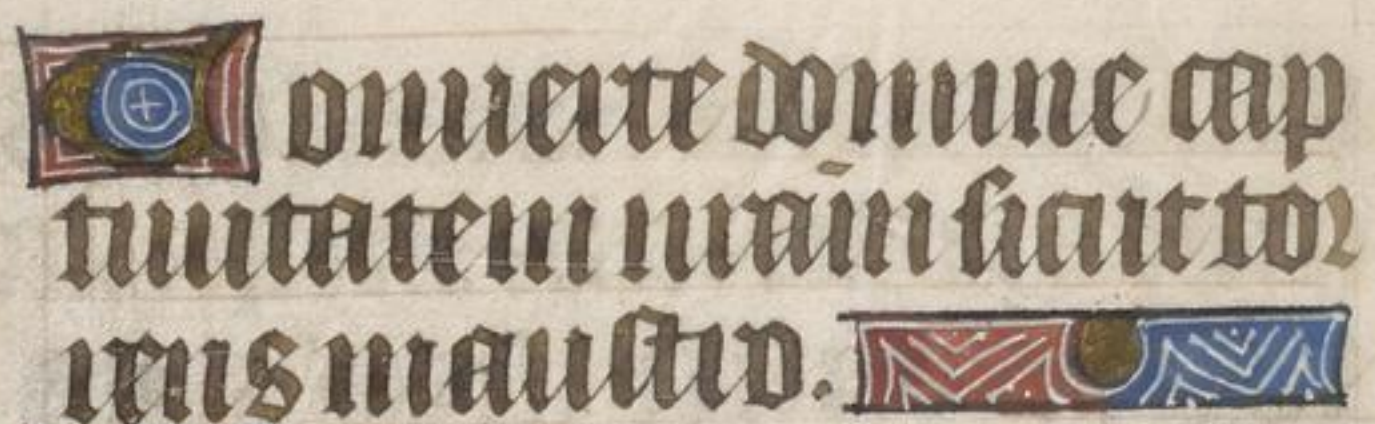 Conuerte domine cap
tiuitatem nr̄am sicut tor
rens in austro.